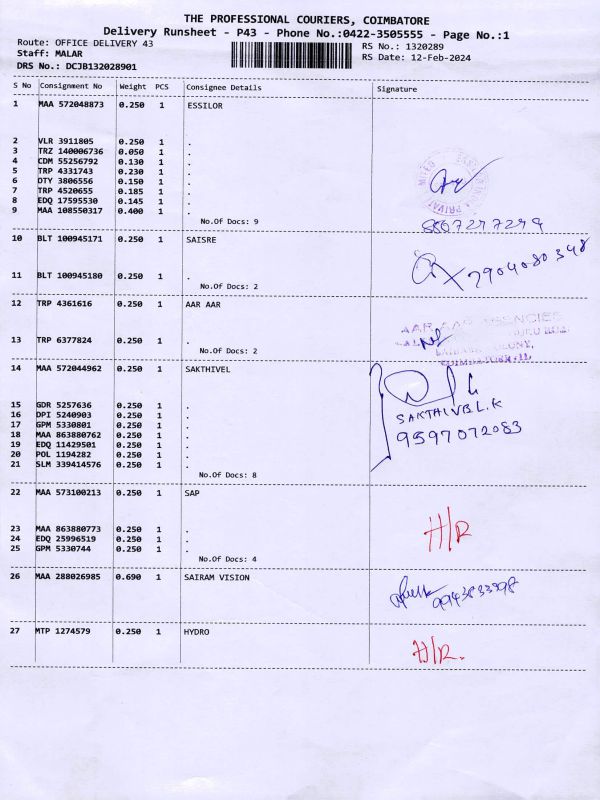 THE PROFESSIONAL COURIERS, COIMBATORE
Delivery Runsheet - P43 - Phone No.:0422-3505555 - Page No.:1
Route: OFFICE DELIVERY 43 RS No.: 1320289
Staff: MALAR RS Date: 12-Feb-2024
DRS No.: DCJB132028901
S No Consignment No Weight PCS Consignee Details Signature
1 MAA 572048873 0.250 1 ESSILOR
2 VLR 3911805 0.250 1 .
3 TRZ 140006736 0.050 1 .
4 CDM 55256792 0.130 1 .
5 TRP 4331743 0.230 1 .
6 DTY 3806556 0.150 1 .
7 TRP 4520655 0.185 1 .
8 EDQ 17595530 0.145 1 .
9 MAA 108550317 0.400 1 .
No.Of Docs: 9
8807277279
10 BLT 100945171 0.250 1 SAISRE
7904080348
11 BLT 100945180 0.250 1 .
No.Of Docs: 2
12 TRP 4361616 0.250 1 AAR AAR
AAR AAR AGENCIES
13 TRP 6377824 0.250 1 .
No.Of Docs: 2
14 MAA 572044962 0.250 1 SAKTHIVEL
15 GDR 5257636 0.250 1 .
SAKTHIVEL.K
16 DPI 5240903 0.250 1 .
17 GPM 5330801 0.250 1 .
9597072083
18 MAA 863880762 0.250 1 .
19 EDQ 11429501 0.250 1 .
20 POL 1194282 0.250 1 .
21 SLM 339414576 0.250 1 .
No.Of Docs: 8
22 MAA 573100213 0.250 1 SAP
23 MAA 863880773 0.250 1 .
H/R
24 EDQ 25996519 0.250 1 .
25 GPM 5330744 0.250 1 .
No.Of Docs: 4
26 MAA 288026985 0.690 1 SAIRAM VISION
27 MTP 1274579 0.250 1 HYDRO
H/R.